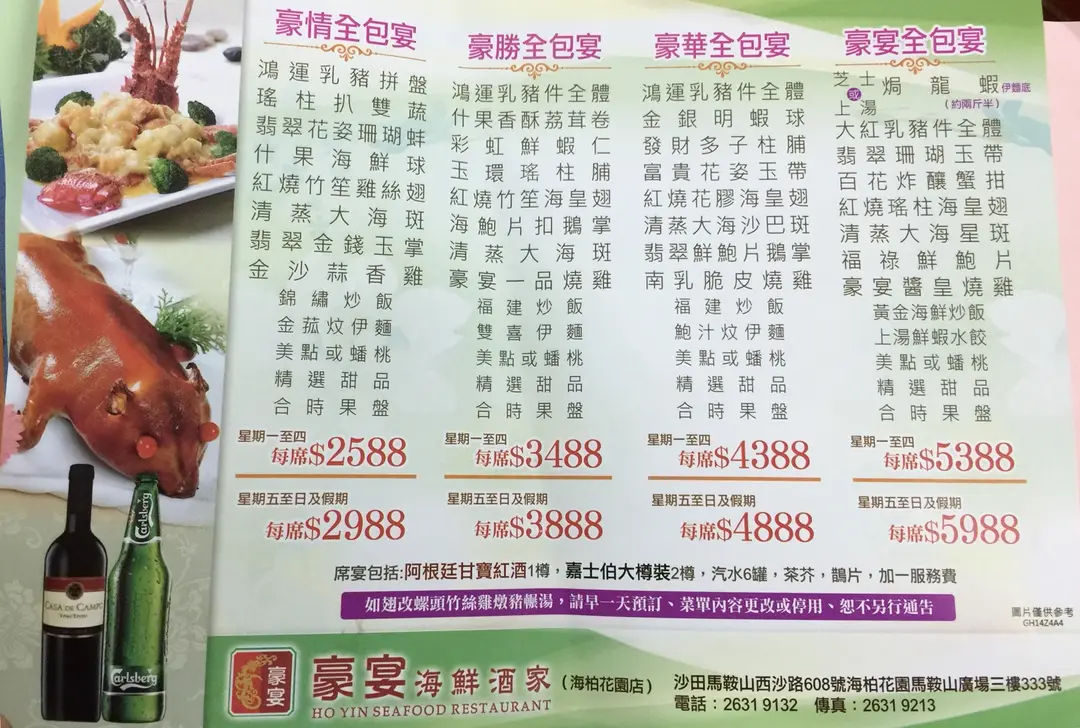 豪情全包宴
鴻運乳豬拼盤
瑤柱扒雙蔬
翡翠花姿珊瑚蚌
什果海鮮球
紅燒竹笙雞絲翅
清蒸大海斑
翡翠金錢玉掌
金沙蒜香雞
錦繡炒飯
金菰炆伊麵
美點或蟠桃
精選甜品
合時果盤
星期一至四
每席$2588
星期五至日及假期
每席$2988
豪勝全包宴
鴻運乳豬件全體
什果香酥荔茸卷
彩虹鮮蝦仁
玉環瑤柱脯
紅燒竹笙海皇翅
海鮑片扣鵝掌
清蒸大海斑
豪宴一品燒雞
福建炒飯
雙喜伊麵
美點或蟠桃
精選甜品
合時果盤
星期一至四
每席$3488
星期五至日及假期
每席$3888
豪華全包宴
鴻運乳豬件全體
金銀明蝦球
發財多子柱脯
富貴花姿玉帶
紅燒花膠海皇翅
清蒸大海沙巴斑
翡翠鮮鮑片鵝掌
南乳脆皮燒雞
福建炒飯
鮑汁炆伊麵
美點或蟠桃
精選甜品
合時果盤
星期一至四
每席$4388
星期五至日及假期
每席$4888
豪宴全包宴
芝士或上湯焗龍蝦伊麵底
(約兩斤半)
大紅乳豬件全體
翡翠珊瑚玉帶
百花炸釀蟹拑
紅燒瑤柱海皇翅
清蒸大海星斑
福祿鮮鮑片
豪宴醬皇燒雞
黃金海鮮炒飯
上湯鮮蝦水餃
美點或蟠桃
精選甜品
合時果盤
星期一至四
每席$5388
星期五至日及假期
每席$5988
席宴包括:阿根廷甘寶紅酒1樽，嘉士伯大樽裝2樽，汽水6罐，茶芥，鵲片，加一服務費
如翅改螺頭竹絲雞燉豬𦟌湯，請早一天預訂、菜單內容更改或停用、恕不另行通告
圖片僅供參考
GH14Z4A4
CASA DE CAMPO
Carlsberg
Carlsberg
豪宴
豪宴海鮮酒家(海柏花園店)
HO YIN SEAFOOD RESTAURANT
沙田馬鞍山西沙路608號海柏花園馬鞍山廣場三樓333號
電話：2631 9132 傳真：2631 9213